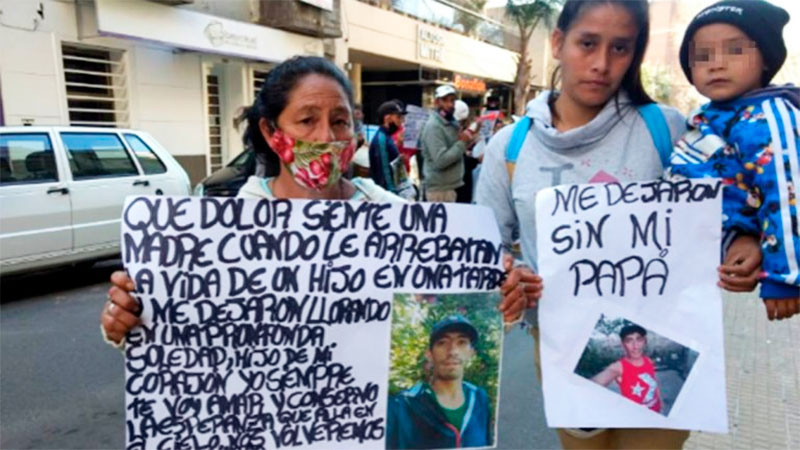 QUE DOLOR SIENTE UNA
MADRE CUANDO LE ARREBATAN
LA VIDA DE UN HIJO EN UNA TARDE
Y ME DEJARON LLORANDO
EN UNA PRONFONDA
SOLEDAD, HIJO DE MI
CORAZÓN YO SIEMPRE
TE VOY AMAR Y CONSERVO
LA ESPERANZA QUE ALLA EN
EL CIELO NOS VOLVEREMOS
ME DEJARON
SIN MI
PAPÁ